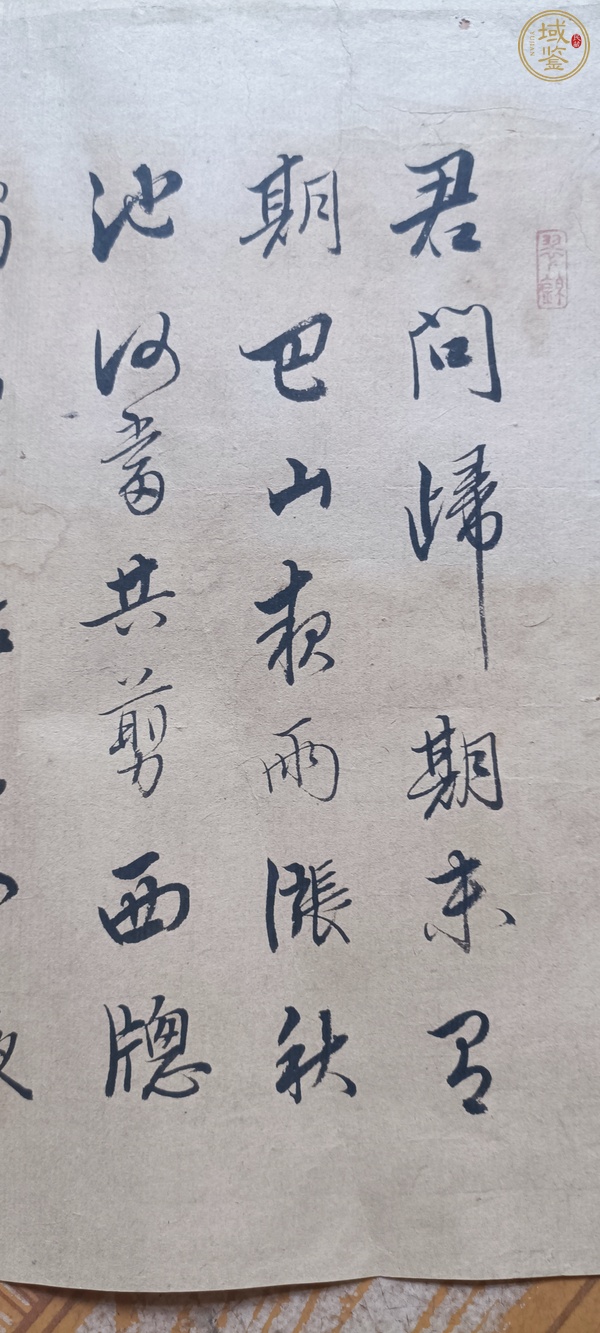 君問歸期未有
期巴山夜雨漲秋
池何當共剪西牕
域鑒
YUJIAN